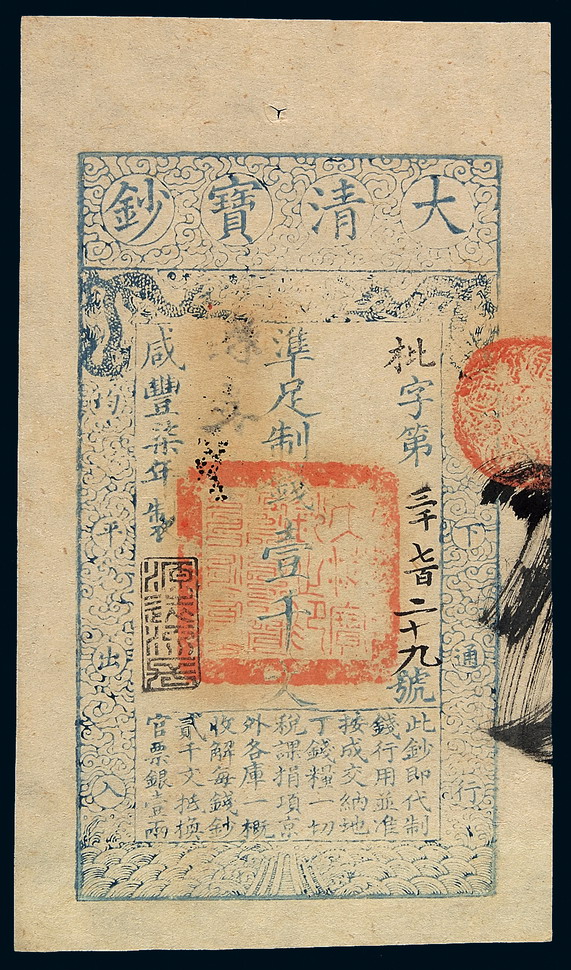 大清寶鈔
天下通行
均平出入
批字第三千七百二十九號
準足制錢壹千文
咸豐柒年製
此鈔即代制
錢行用並准
按成交納地
丁錢糧一切
稅課捐項京
外各庫一概
收解每錢鈔
貳千文抵換
官票銀壹兩